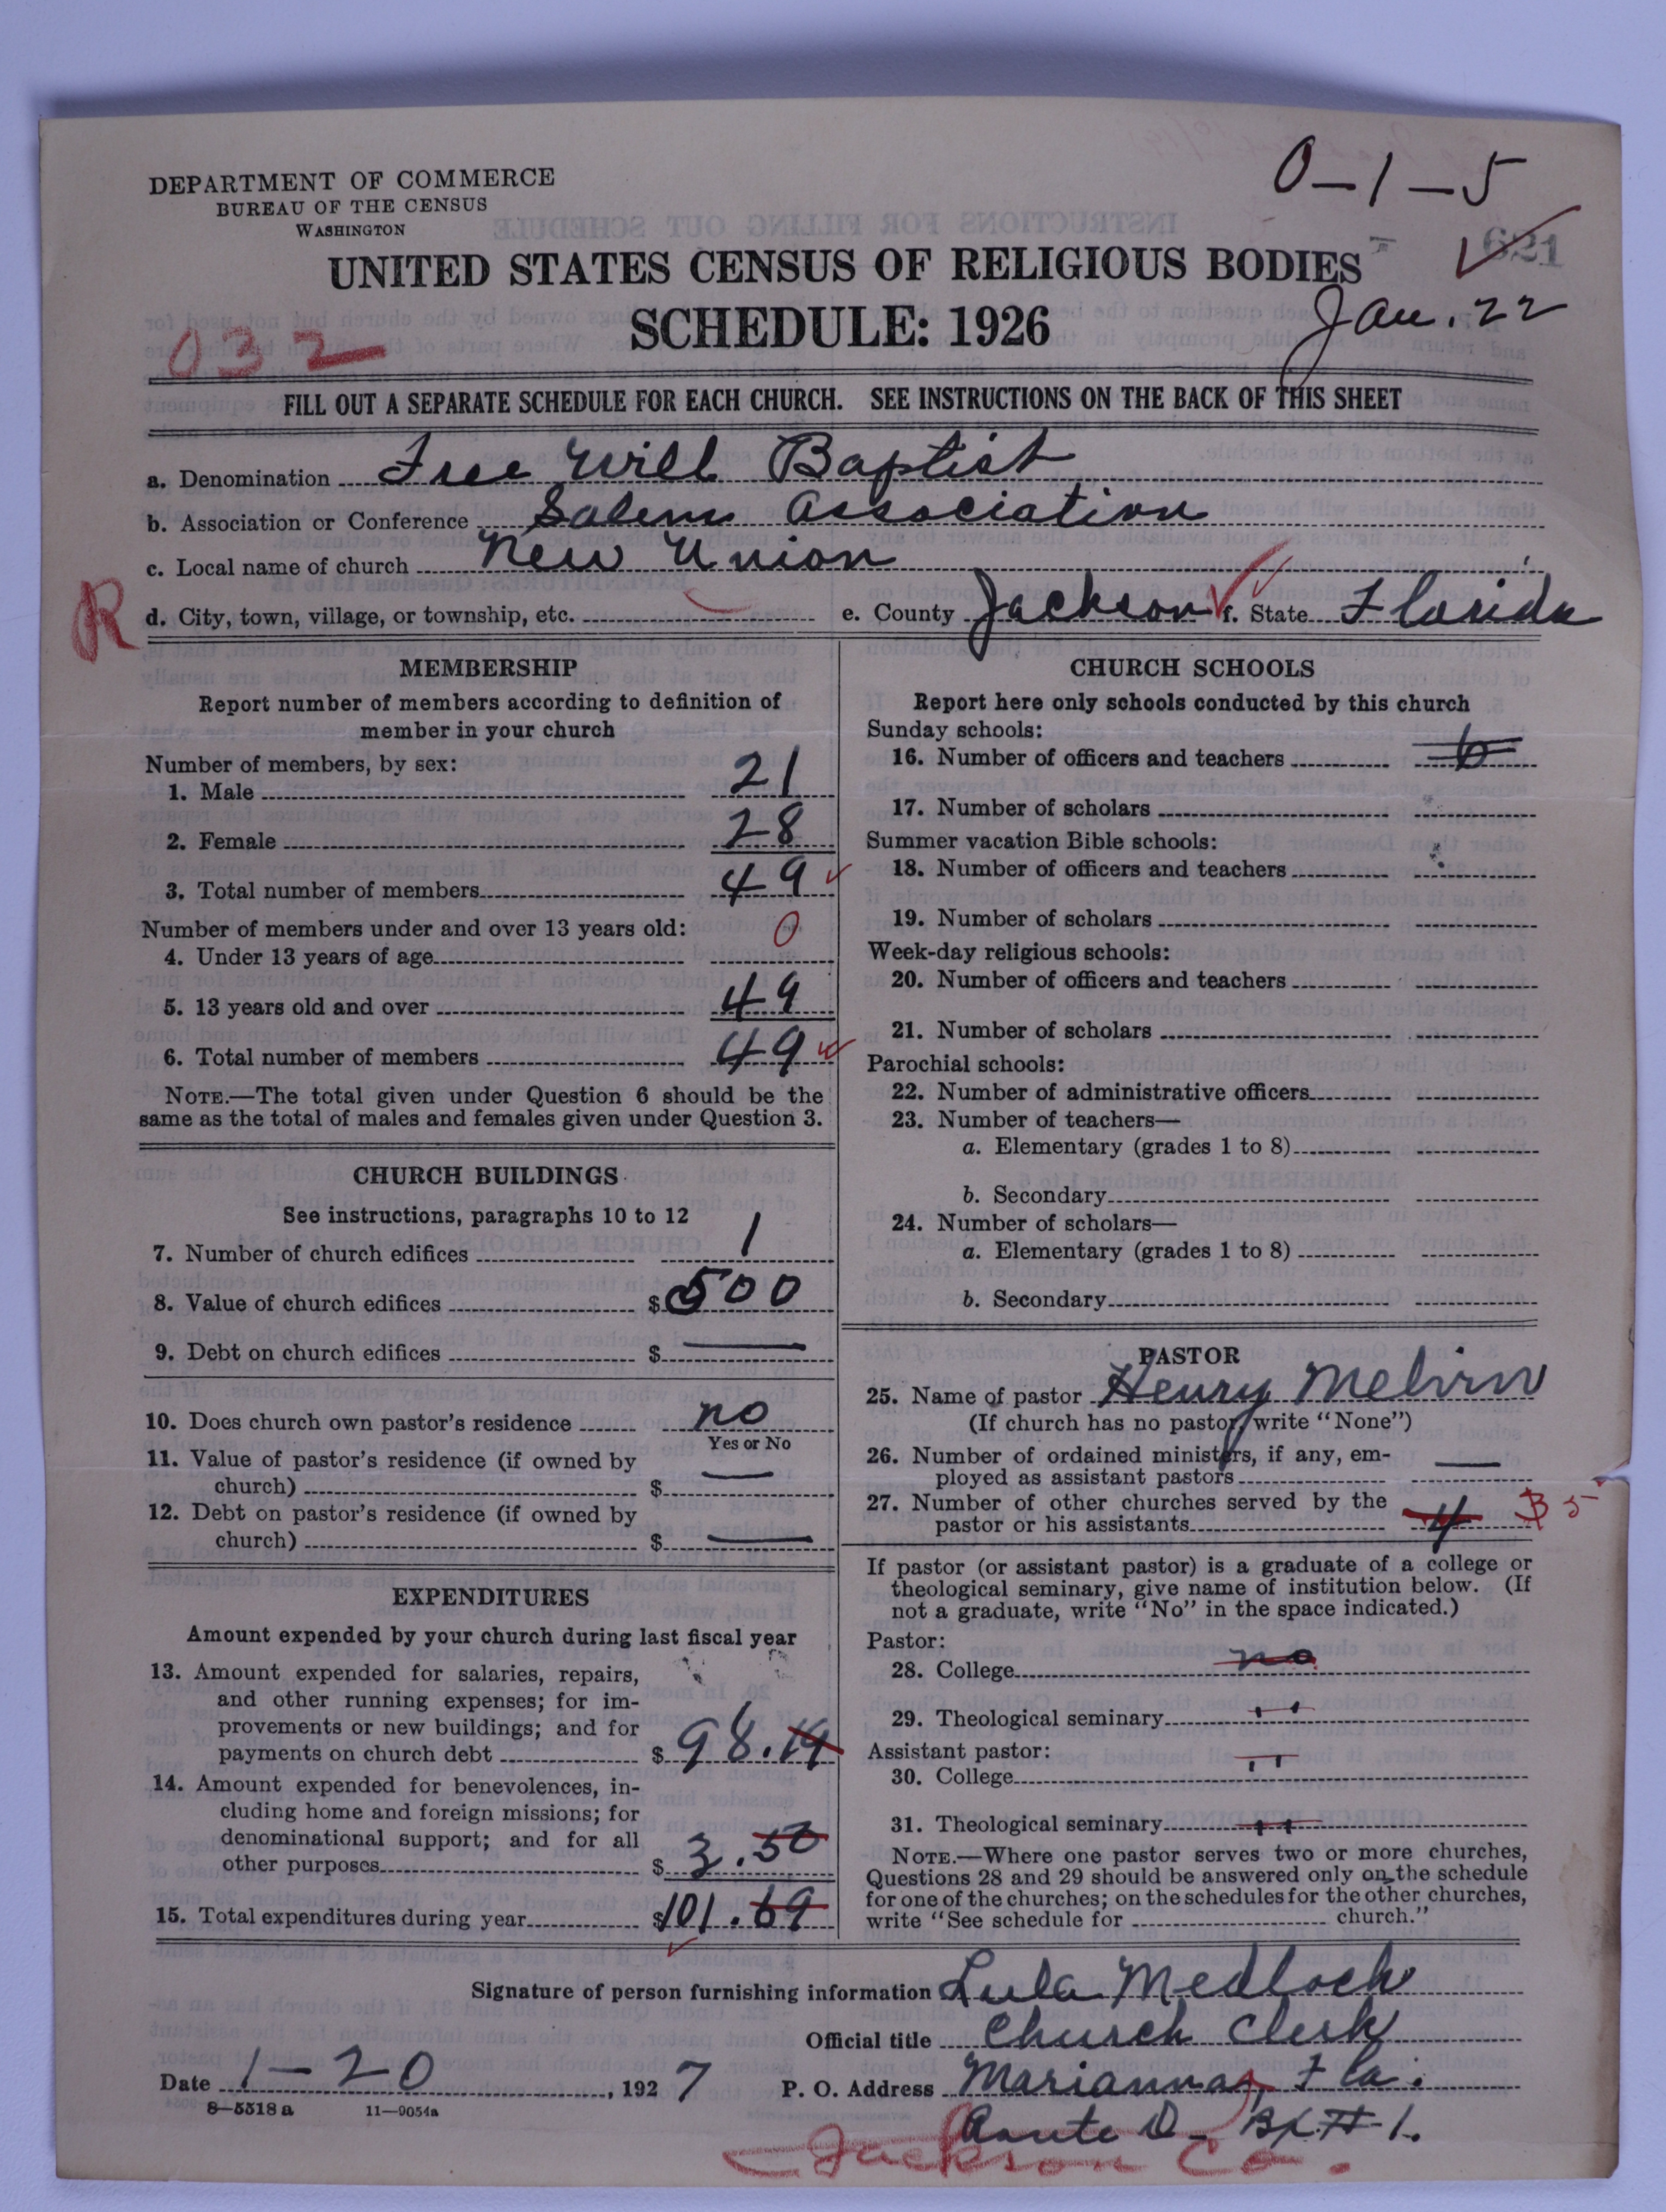 0-1-5
DEPARTMENT OF COMMERCE
BUREAU OF THE CENSUS
WASHINGTON
621
UNITED STATES CENSUS OF RELIGIOUS BODIES
SCHEDULE: 1926
Jan. 22
032
FILL OUT A SEPARATE SCHEDULE FOR EACH CHURCH. SEE INSTRUCTIONS ON THE BACK OF THIS SHEET
a. Denomination Free Will Baptist
b. Association or Conference Salem Association
c. Local name of church New Union
R
d. City, town, village, or township, etc. e. County Jackson f. State Florida
MEMBERSHIP
Report number of members according to definition of
member in your church
Number of members, by sex:
1. Male 21
2. Female 28
3. Total number of members 49
Number of members under and over 13 years old:
4. Under 13 years of age 0
5. 13 years old and over 49
6. Total number of members 49
NOTE.—The total given under Question 6 should be the
same as the total of males and females given under Question 3.
CHURCH BUILDINGS
See instructions, paragraphs 10 to 12
7. Number of church edifices 1
8. Value of church edifices $ 500
9. Debt on church edifices $ —
10. Does church own pastor's residence no
Yes or No
11. Value of pastor's residence (if owned by
church) $ —
12. Debt on pastor's residence (if owned by
church) $ —
EXPENDITURES
Amount expended by your church during last fiscal year
13. Amount expended for salaries, repairs,
and other running expenses; for im-
provements or new buildings; and for
payments on church debt $ 98.19
14. Amount expended for benevolences, in-
cluding home and foreign missions; for
denominational support; and for all
other purposes $ 3.50
15. Total expenditures during year $101.69
CHURCH SCHOOLS
Report here only schools conducted by this church
Sunday schools:
16. Number of officers and teachers 6
17. Number of scholars
Summer vacation Bible schools:
18. Number of officers and teachers
19. Number of scholars
Week-day religious schools:
20. Number of officers and teachers
21. Number of scholars
Parochial schools:
22. Number of administrative officers
23. Number of teachers—
a. Elementary (grades 1 to 8)
b. Secondary
24. Number of scholars—
a. Elementary (grades 1 to 8)
b. Secondary
PASTOR
25. Name of pastor Henry Melvin
(If church has no pastor, write "None")
26. Number of ordained ministers, if any, em-
ployed as assistant pastors —
27. Number of other churches served by the
pastor or his assistants 4 B 5
If pastor (or assistant pastor) is a graduate of a college or
theological seminary, give name of institution below. (If
not a graduate, write "No" in the space indicated.)
Pastor:
28. College no
29. Theological seminary "
Assistant pastor:
30. College "
31. Theological seminary "
NOTE.—Where one pastor serves two or more churches,
Questions 28 and 29 should be answered only on the schedule
for one of the churches; on the schedules for the other churches,
write "See schedule for church."
Signature of person furnishing information Lula Medlock
Official title Church Clerk
Date 1-20, 1927 P. O. Address Marianna, Fla.
8-5518 a 11-9054a
Route D- Bx #1.
Jackson Co.